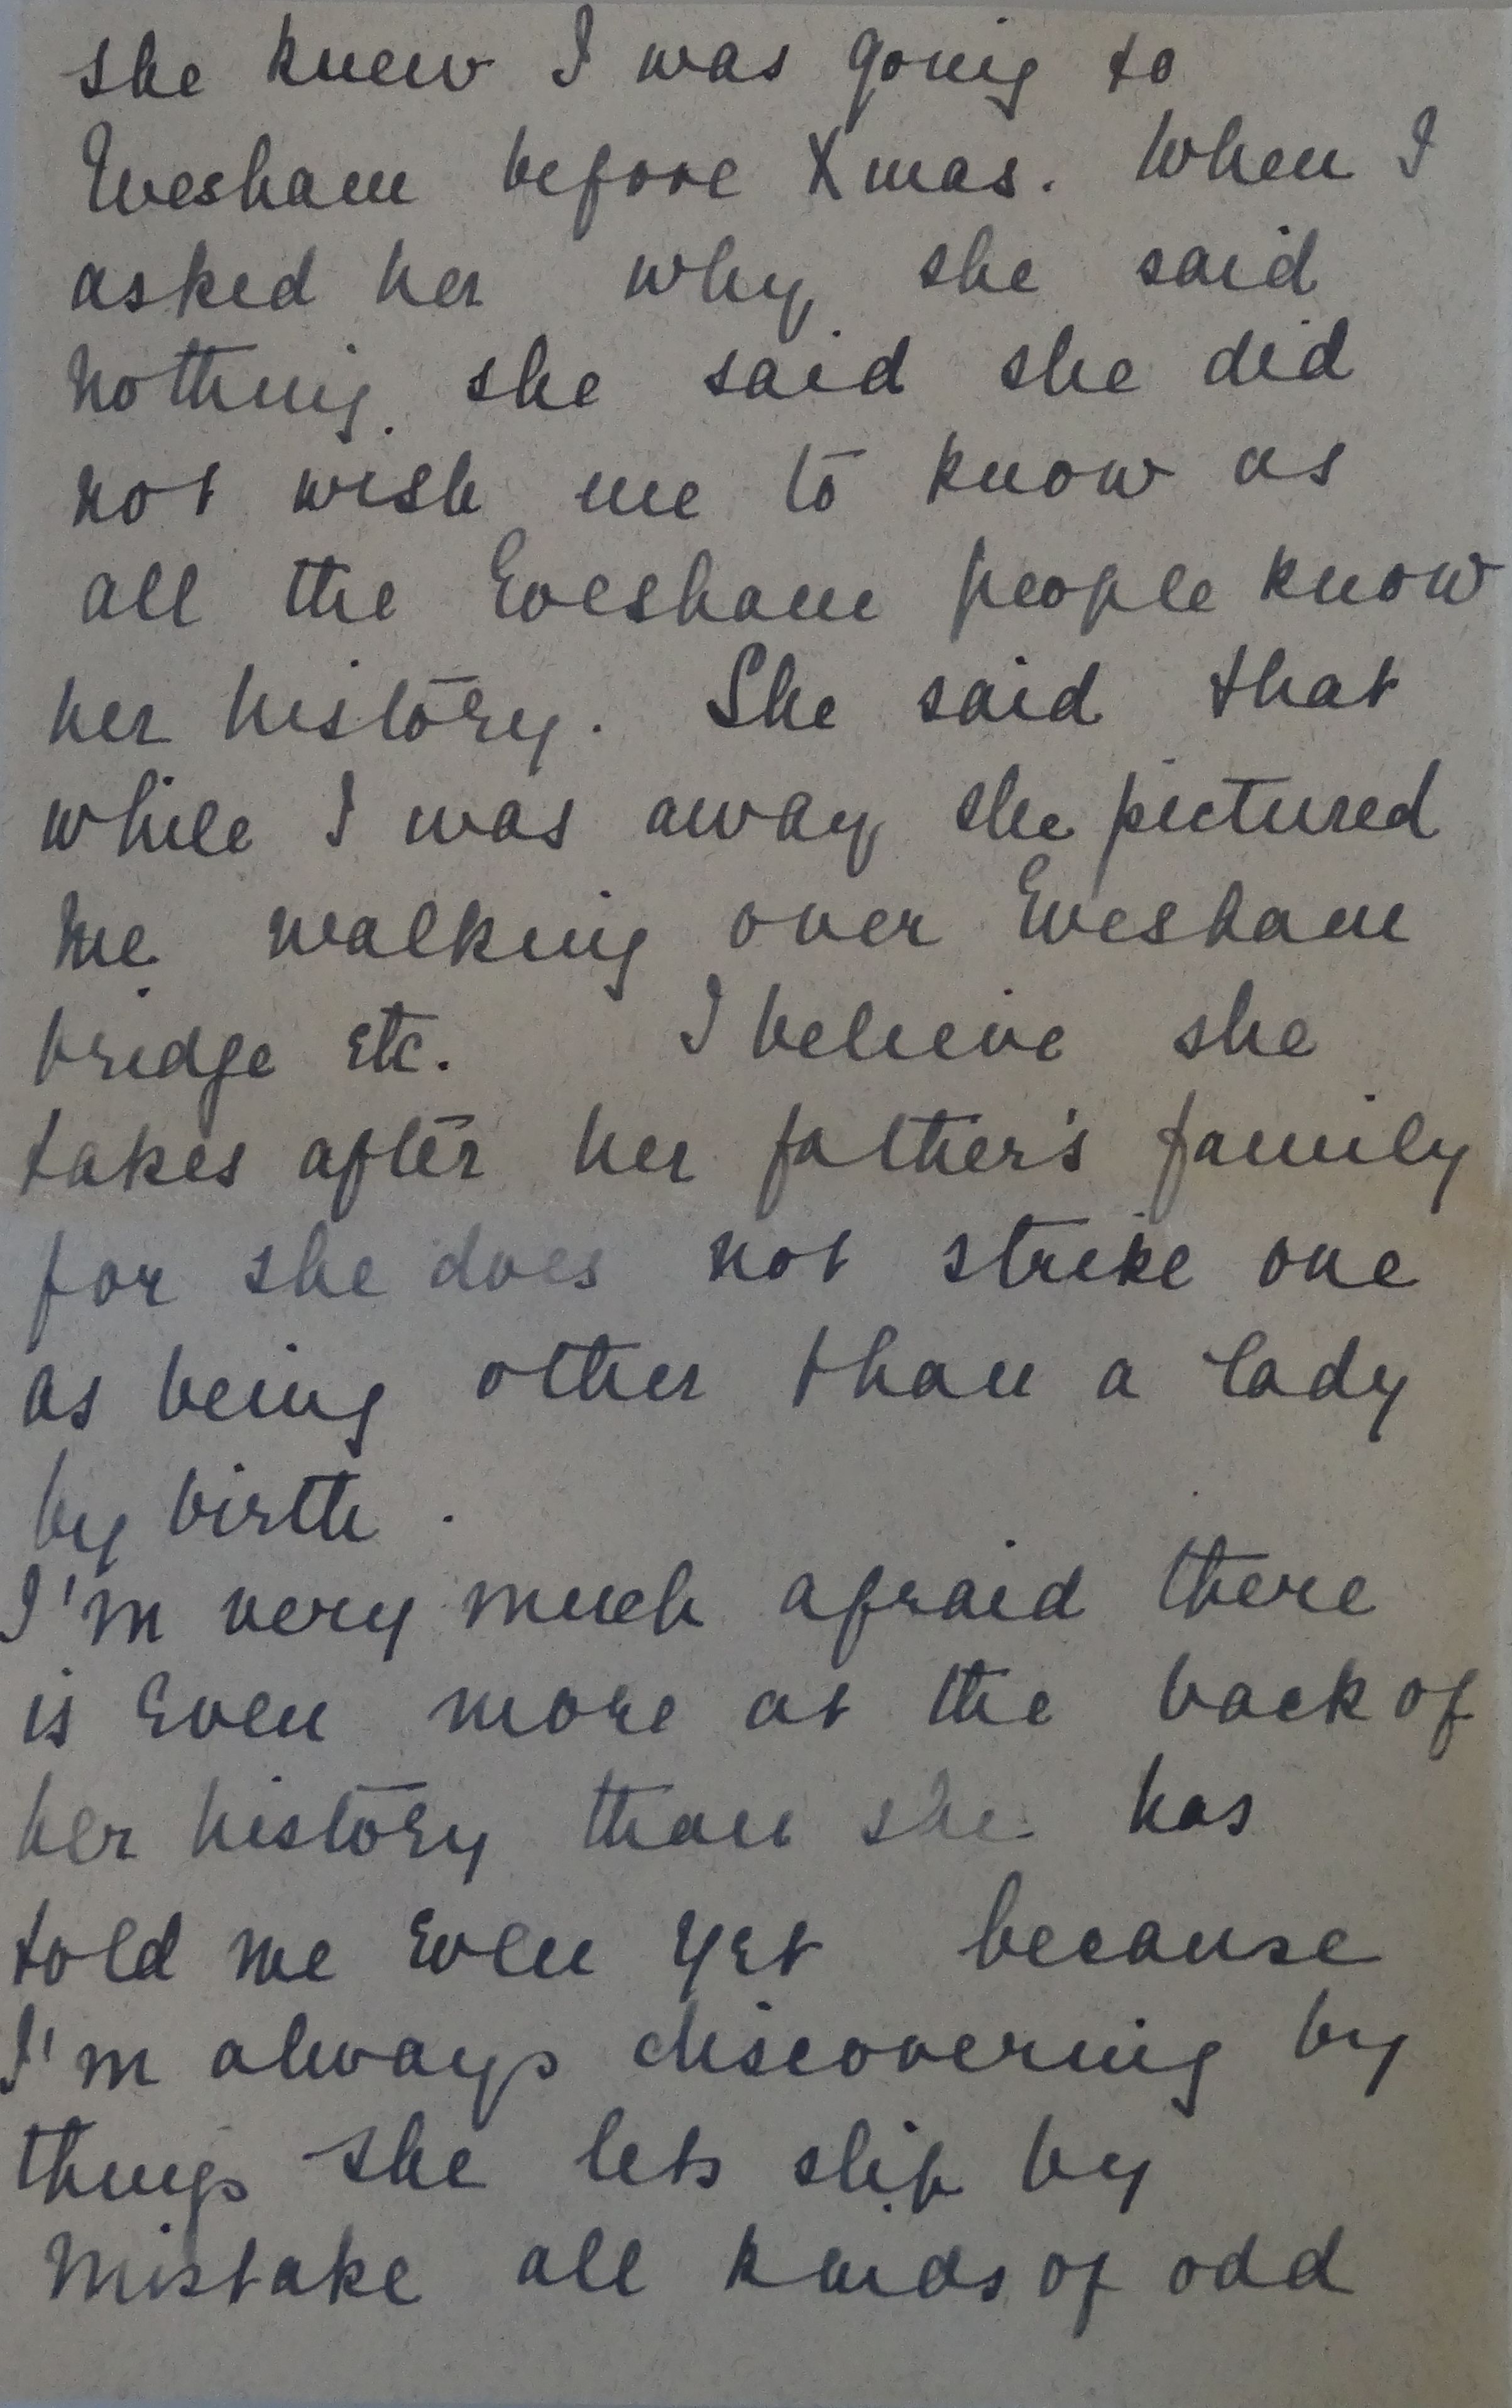 she knew I was going to
Evesham before Xmas. When I
asked her why she said
nothing. she said she did
not wish me to know as
all the Evesham people know
her history. She said that
while I was away she pictured
me walking over Evesham
bridge etc. I believe she
takes after her father's family
for she does not strike one
as being other than a lady
by birth.
I'm very much afraid there
is even more at the back of
her history than she has
told me even yet because
I'm always discovering by
things she lets slip by
mistake all kinds of odd